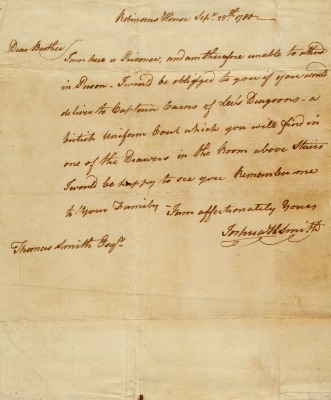 Robinsons House Sepr. 25th 1780
Dear Brother
I am here a Prisoner, and am therefore unable to attend
in Person - I would be obligged to you if you would
deliver to Captain Cairns of Lee's Dragoons - a
british Uniform Coat which you will find in
one of the Drawers in the Room above Stairs
I would be happy to see you Remember me
to your Family - I am affectionately Yours
Joshua H Smith
Thomas Smith Esqr.